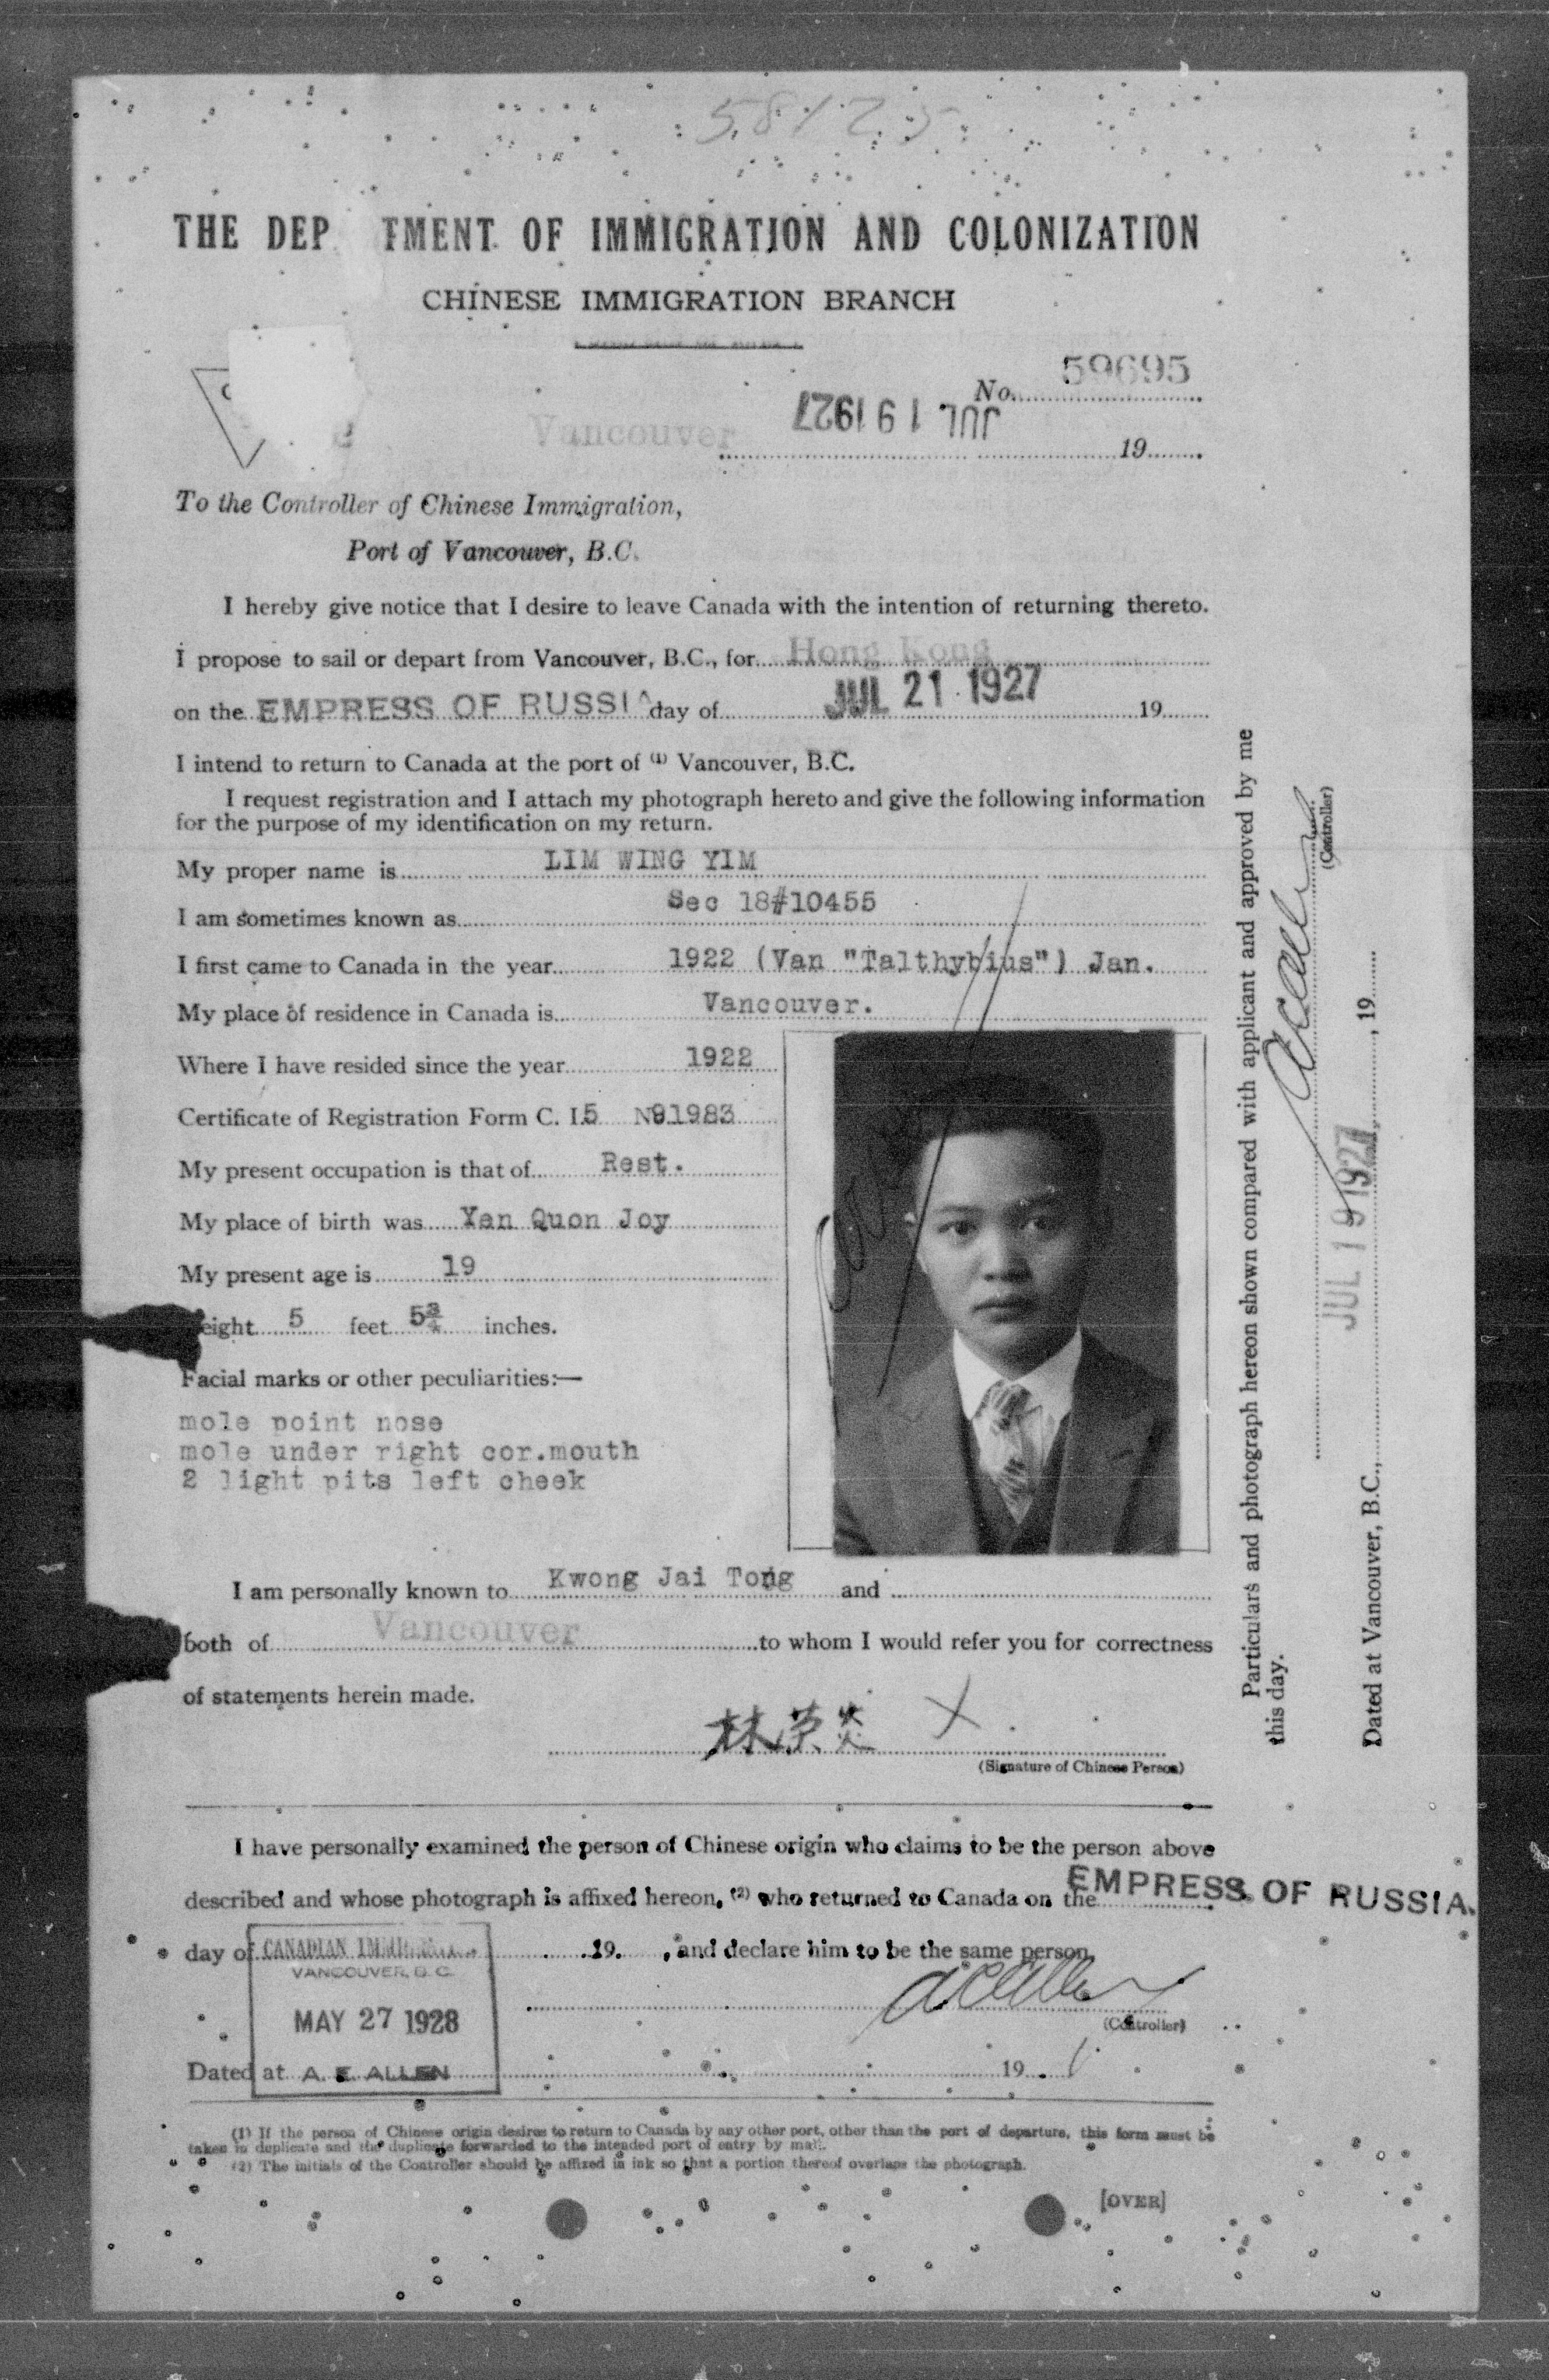 58125
THE DEP TMENT OF IMMIGRATION AND COLONIZATION
CHINESE IMMIGRATION BRANCH
No. 59695
Vancouver JUL 19 1927 19
To the Controller of Chinese Immigration,
Port of Vancouver, B.C.
I hereby give notice that I desire to leave Canada with the intention of returning thereto.
I propose to sail or depart from Vancouver, B.C., for Hong Kong
on the EMPRESS OF RUSSIA day of JUL 21 1927 19
I intend to return to Canada at the port of (1) Vancouver, B.C.
I request registration and I attach my photograph hereto and give the following information
for the purpose of my identification on my return.
My proper name is LIM WING YIM
I am sometimes known as Sec 18#10455
I first came to Canada in the year 1922 (Van "Talthybius") Jan.
My place of residence in Canada is Vancouver.
Where I have resided since the year 1922
Certificate of Registration Form C. I.5 No 91983
My present occupation is that of Rest.
My place of birth was Yan Quon Joy
My present age is 19
eight 5 feet 5¾ inches.
Facial marks or other peculiarities:—
mole point nose
mole under right cor.mouth
2 light pits left cheek
I am personally known to Kwong Jai Tong and
both of Vancouver to whom I would refer you for correctness
of statements herein made.
林荣炎 X
(Signature of Chinese Person)
I have personally examined the person of Chinese origin who claims to be the person above
described and whose photograph is affixed hereon, (2) who returned to Canada on the EMPRESS OF RUSSIA.
day of 19. , and declare him to be the same person.
CANADIAN IMMIGRATION
VANCOUVER, B.C.
MAY 27 1928
A. E. ALLEN
(Controller)
Dated at 19
(1) If the person of Chinese origin desires to return to Canada by any other port, other than the port of departure, this form must be
taken in duplicate and the duplicate forwarded to the intended port of entry by mail.
(2) The initials of the Controller should be affixed in ink so that a portion thereof overlaps the photograph.
[OVER]
Particulars and photograph hereon shown compared with applicant and approved by me
this day.
(Controller)
JUL 19 1927
Dated at Vancouver, B.C., , 19